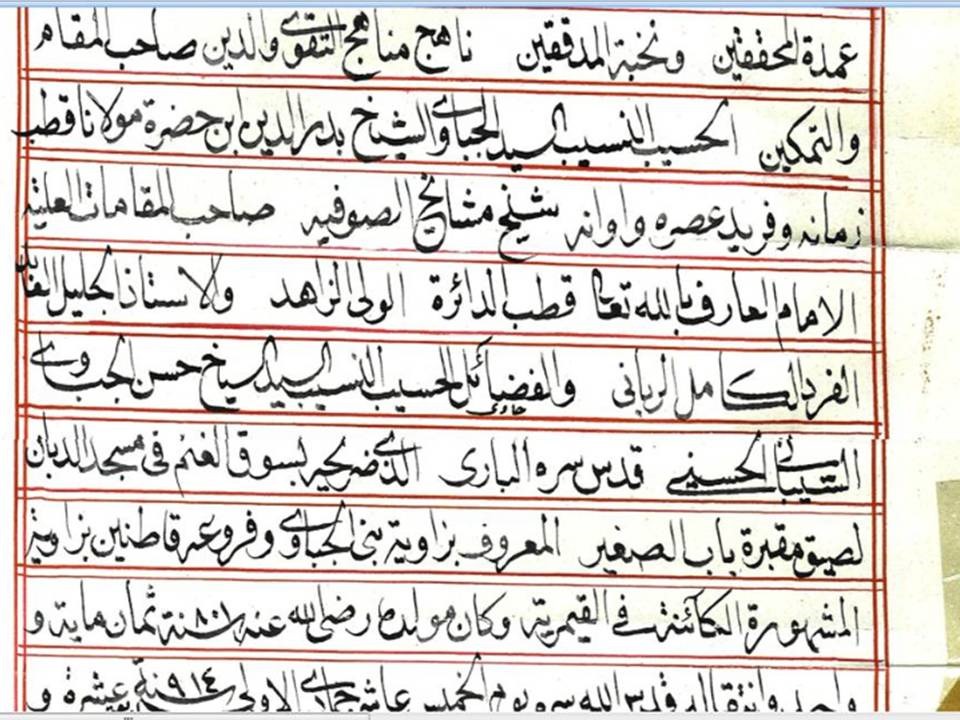 عمدة المحققين ونخبة المدققين ناهج مناهج التقوى والدين صاحب المقام
والتمكين الحسيب النسيب السيد الجباوي الشيخ بدر الدين بن حضرة مولانا قطب
زمانه وفريد عصره واوانه شيخ مشائخ الصوفيه صاحب المقامات العلية
الامام العارف بالله تعالى قطب الدائرة الولي الزاهد والاستاذ الجليل العابد
الفرد الكامل الرباني والفضائل الحسيب النسيب السيد الشيخ حسن الجباوي
الشيباني الحسيني قدس سره الباري الذي ضريحه بسوق الغنم في مسجد الدبان
لصيق مقبرة باب الصغير المعروف بزاوية بني الجباوي وفروعه قاطنين بزاوية
المشهورة الكائنة في القيمرية وكان مولده رضي الله عنه ٨٠١ سنة ثمان ماية و
واحد وانتقاله قدس الله سره يوم الخميس عاشر جمادى الاولى ٩١٤ سنة عشرة و